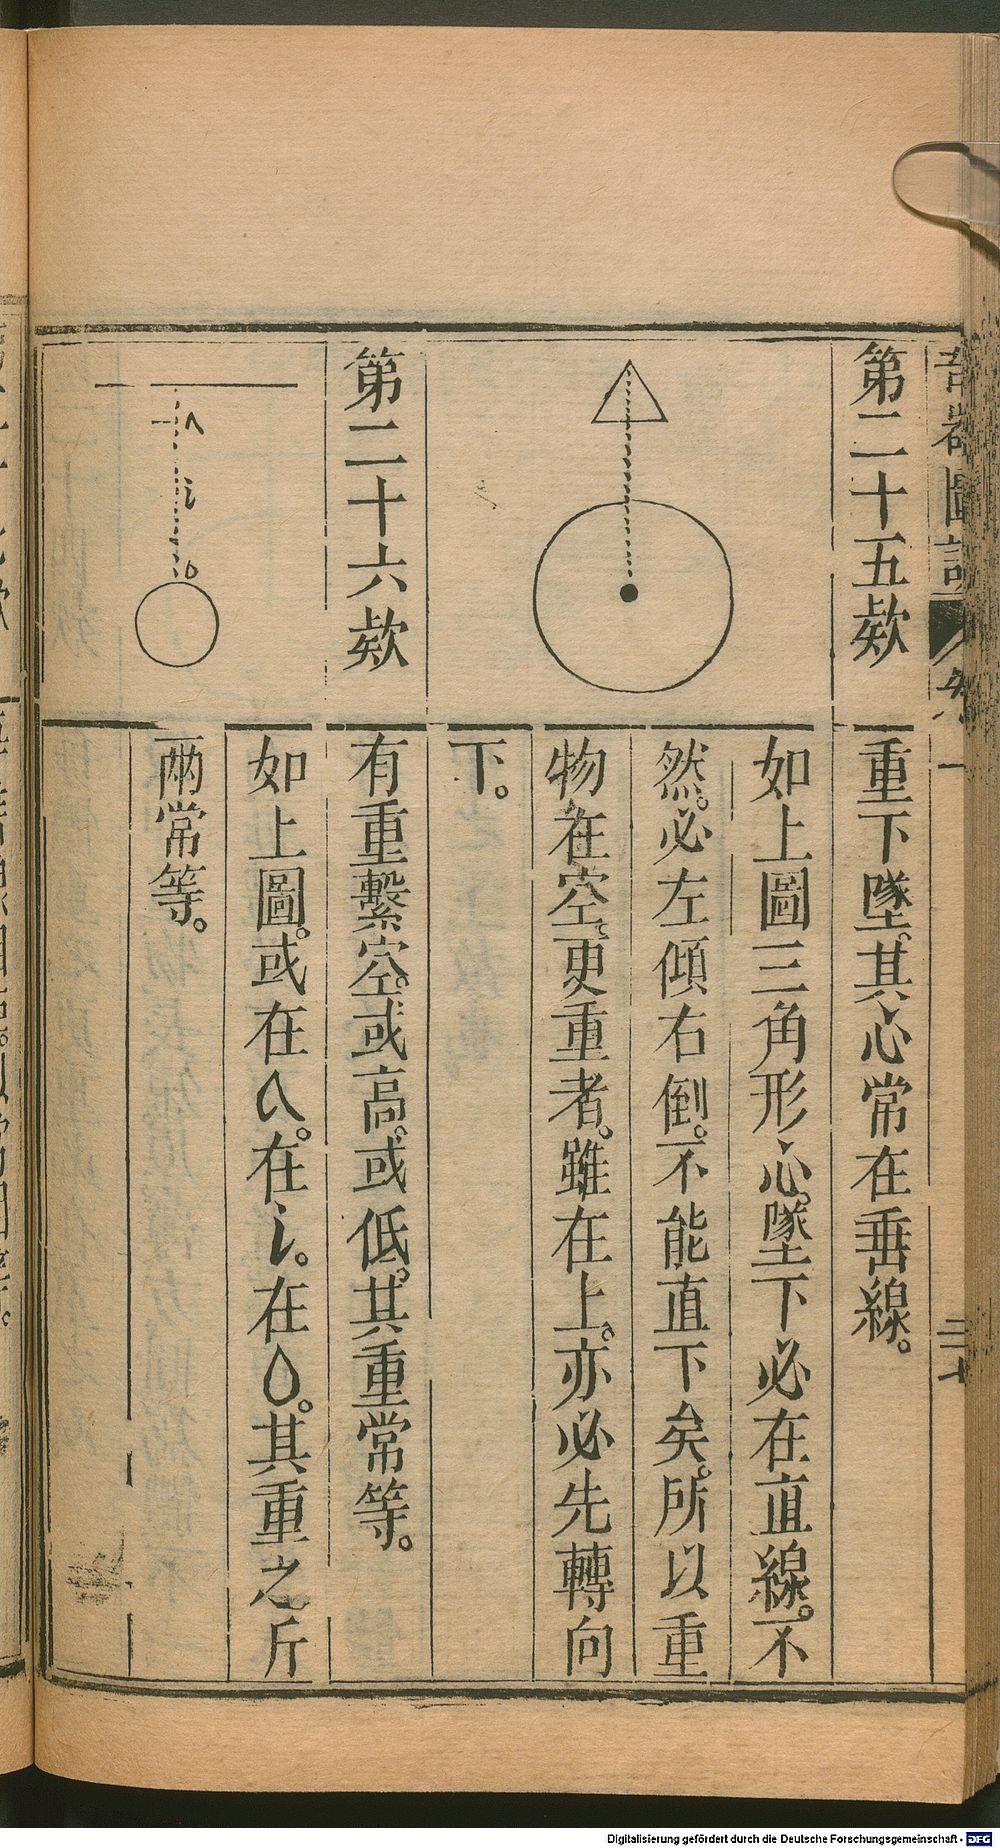 第二十五欵
重下墜。其心常在垂線。
如上圖三角形心。墜下必在直線。不
然。必左傾右倒。不能直下矣。所以重
物在空。更重者。雖在上。亦必先轉向
下。
第二十六欵
有重繫空。或高。或低。其重常等。
如上圖。或在ㄟ。在i。在o。其重之斤
兩常等。
i
o
Digitalisierung gefördert durch die Deutsche Forschungsgemeinschaft - DFG